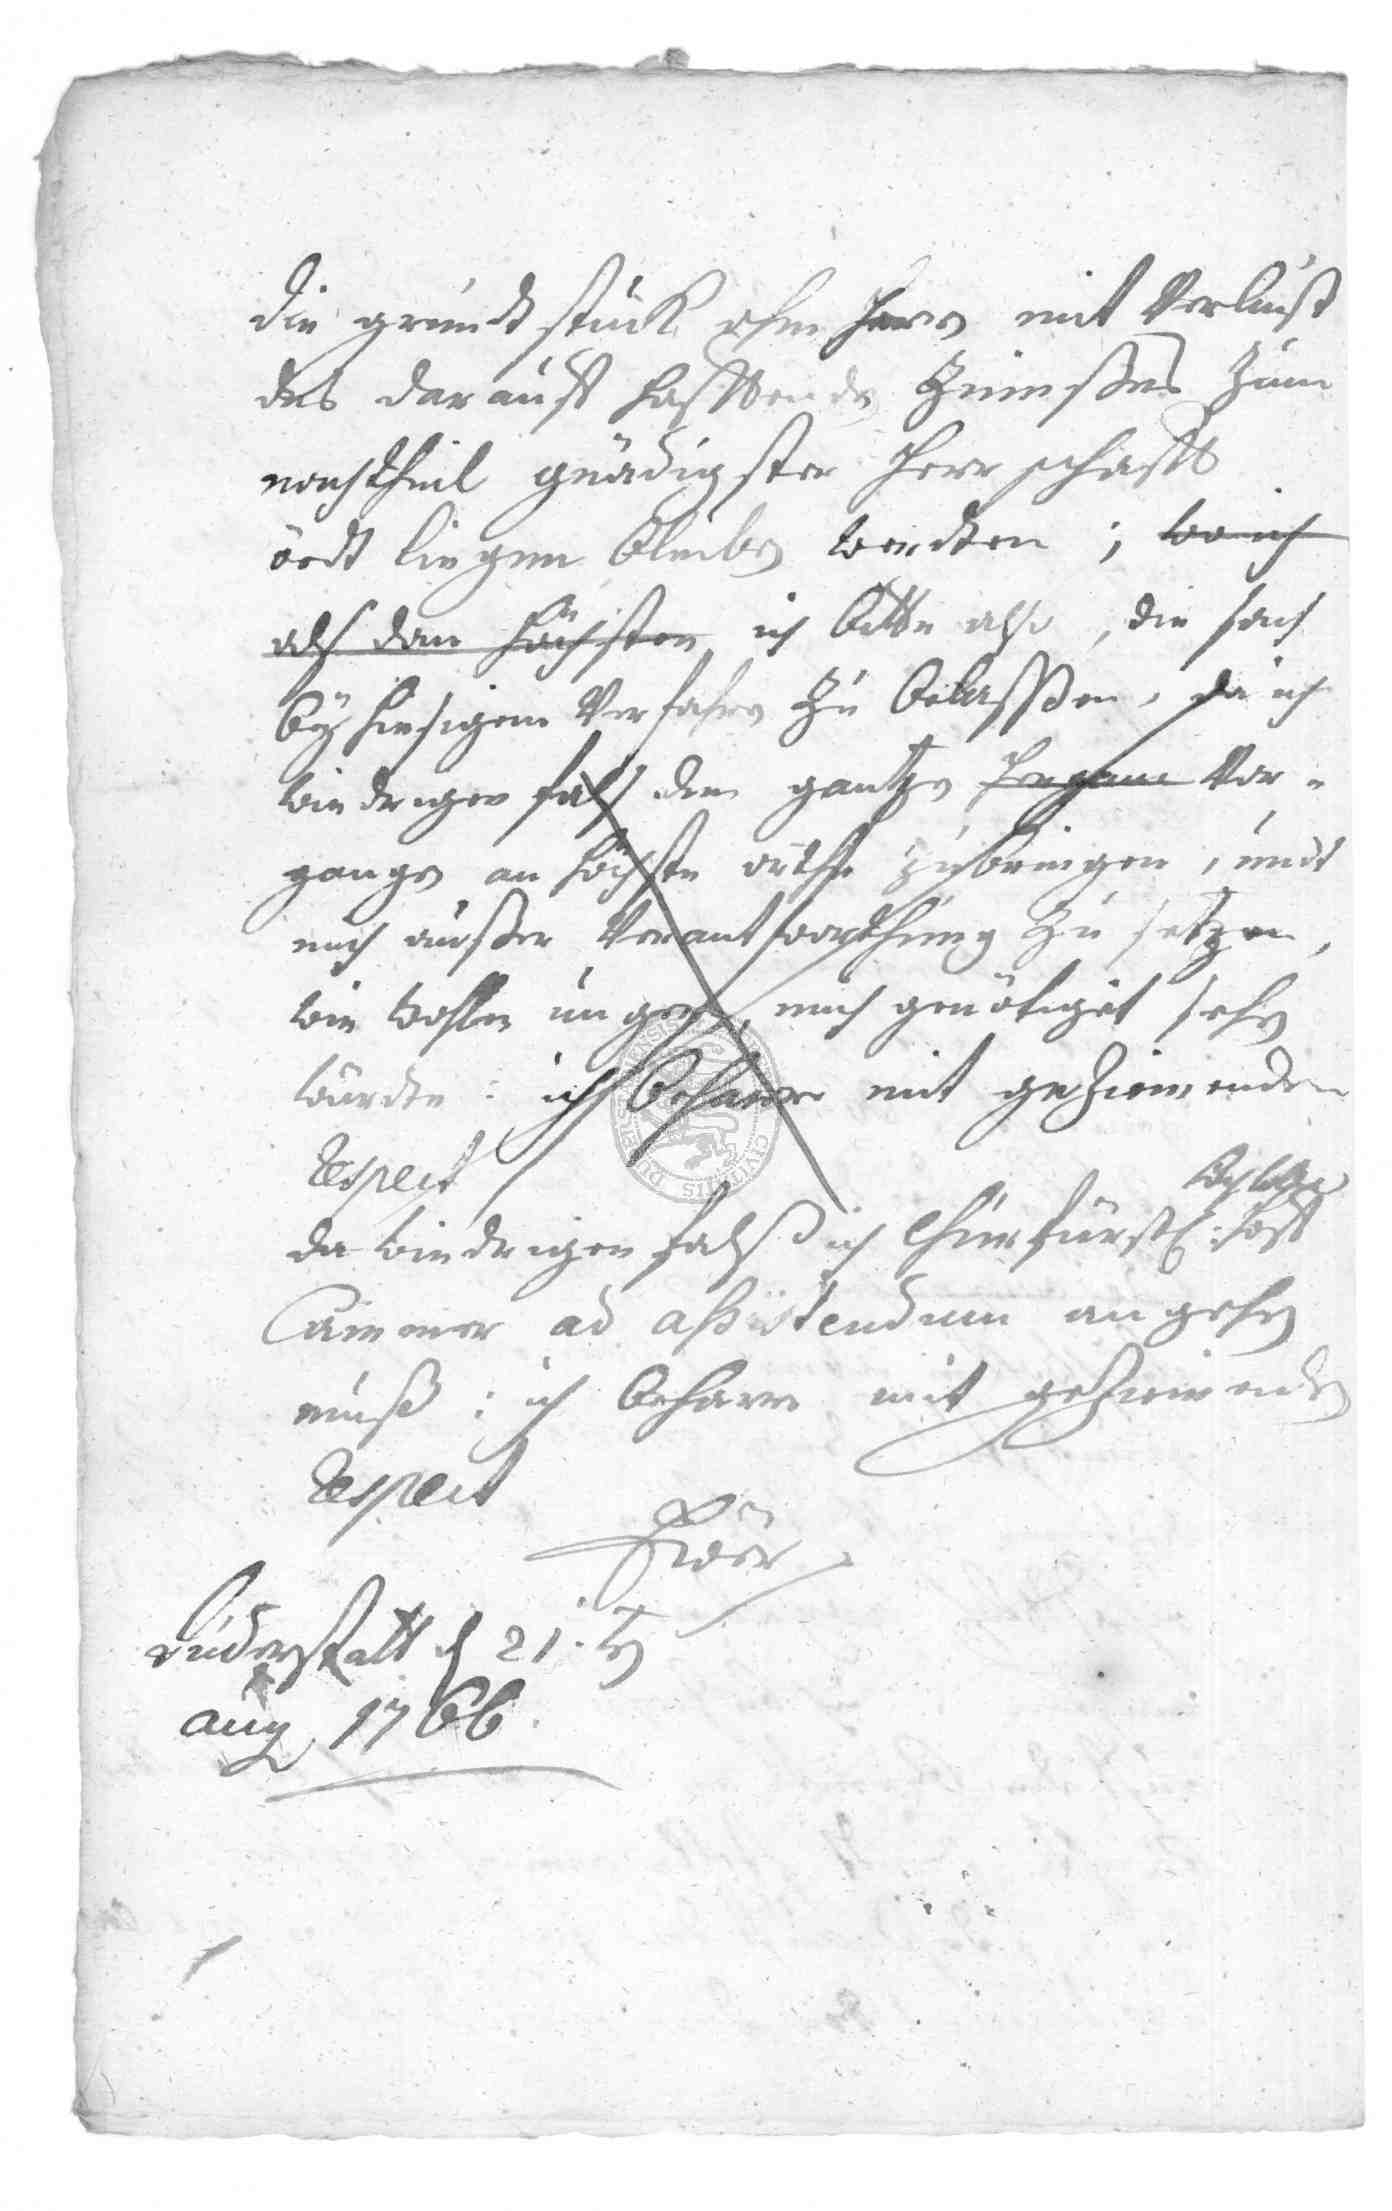 die grundt stück ohne Herrn mit Verlust
des darauff hafftende Zinnßes Zum
nachtheil gnädigster Herrschafft
öedt liegen bleiben werdten ;
ich bitte also, die sach
bey hiesigem Verfahren zu belaßßen, da ich
wiedrigen fals den gantzen Vor-
gange an höchste orthe zu bringen, undt
mich außer Verantworthung zu setzen,
wie wohlen ungern, mich genötiget sehen
würdte : ich beharre mit geziemenden
Respect
da wiedrigen falß ich Churfürstl. Hoff
Cammer ad assistendum angehen
muß : ich beharre mit geziemenden
Respect
Duderstatt d 21. t
aug 1766.
CIVITATIS